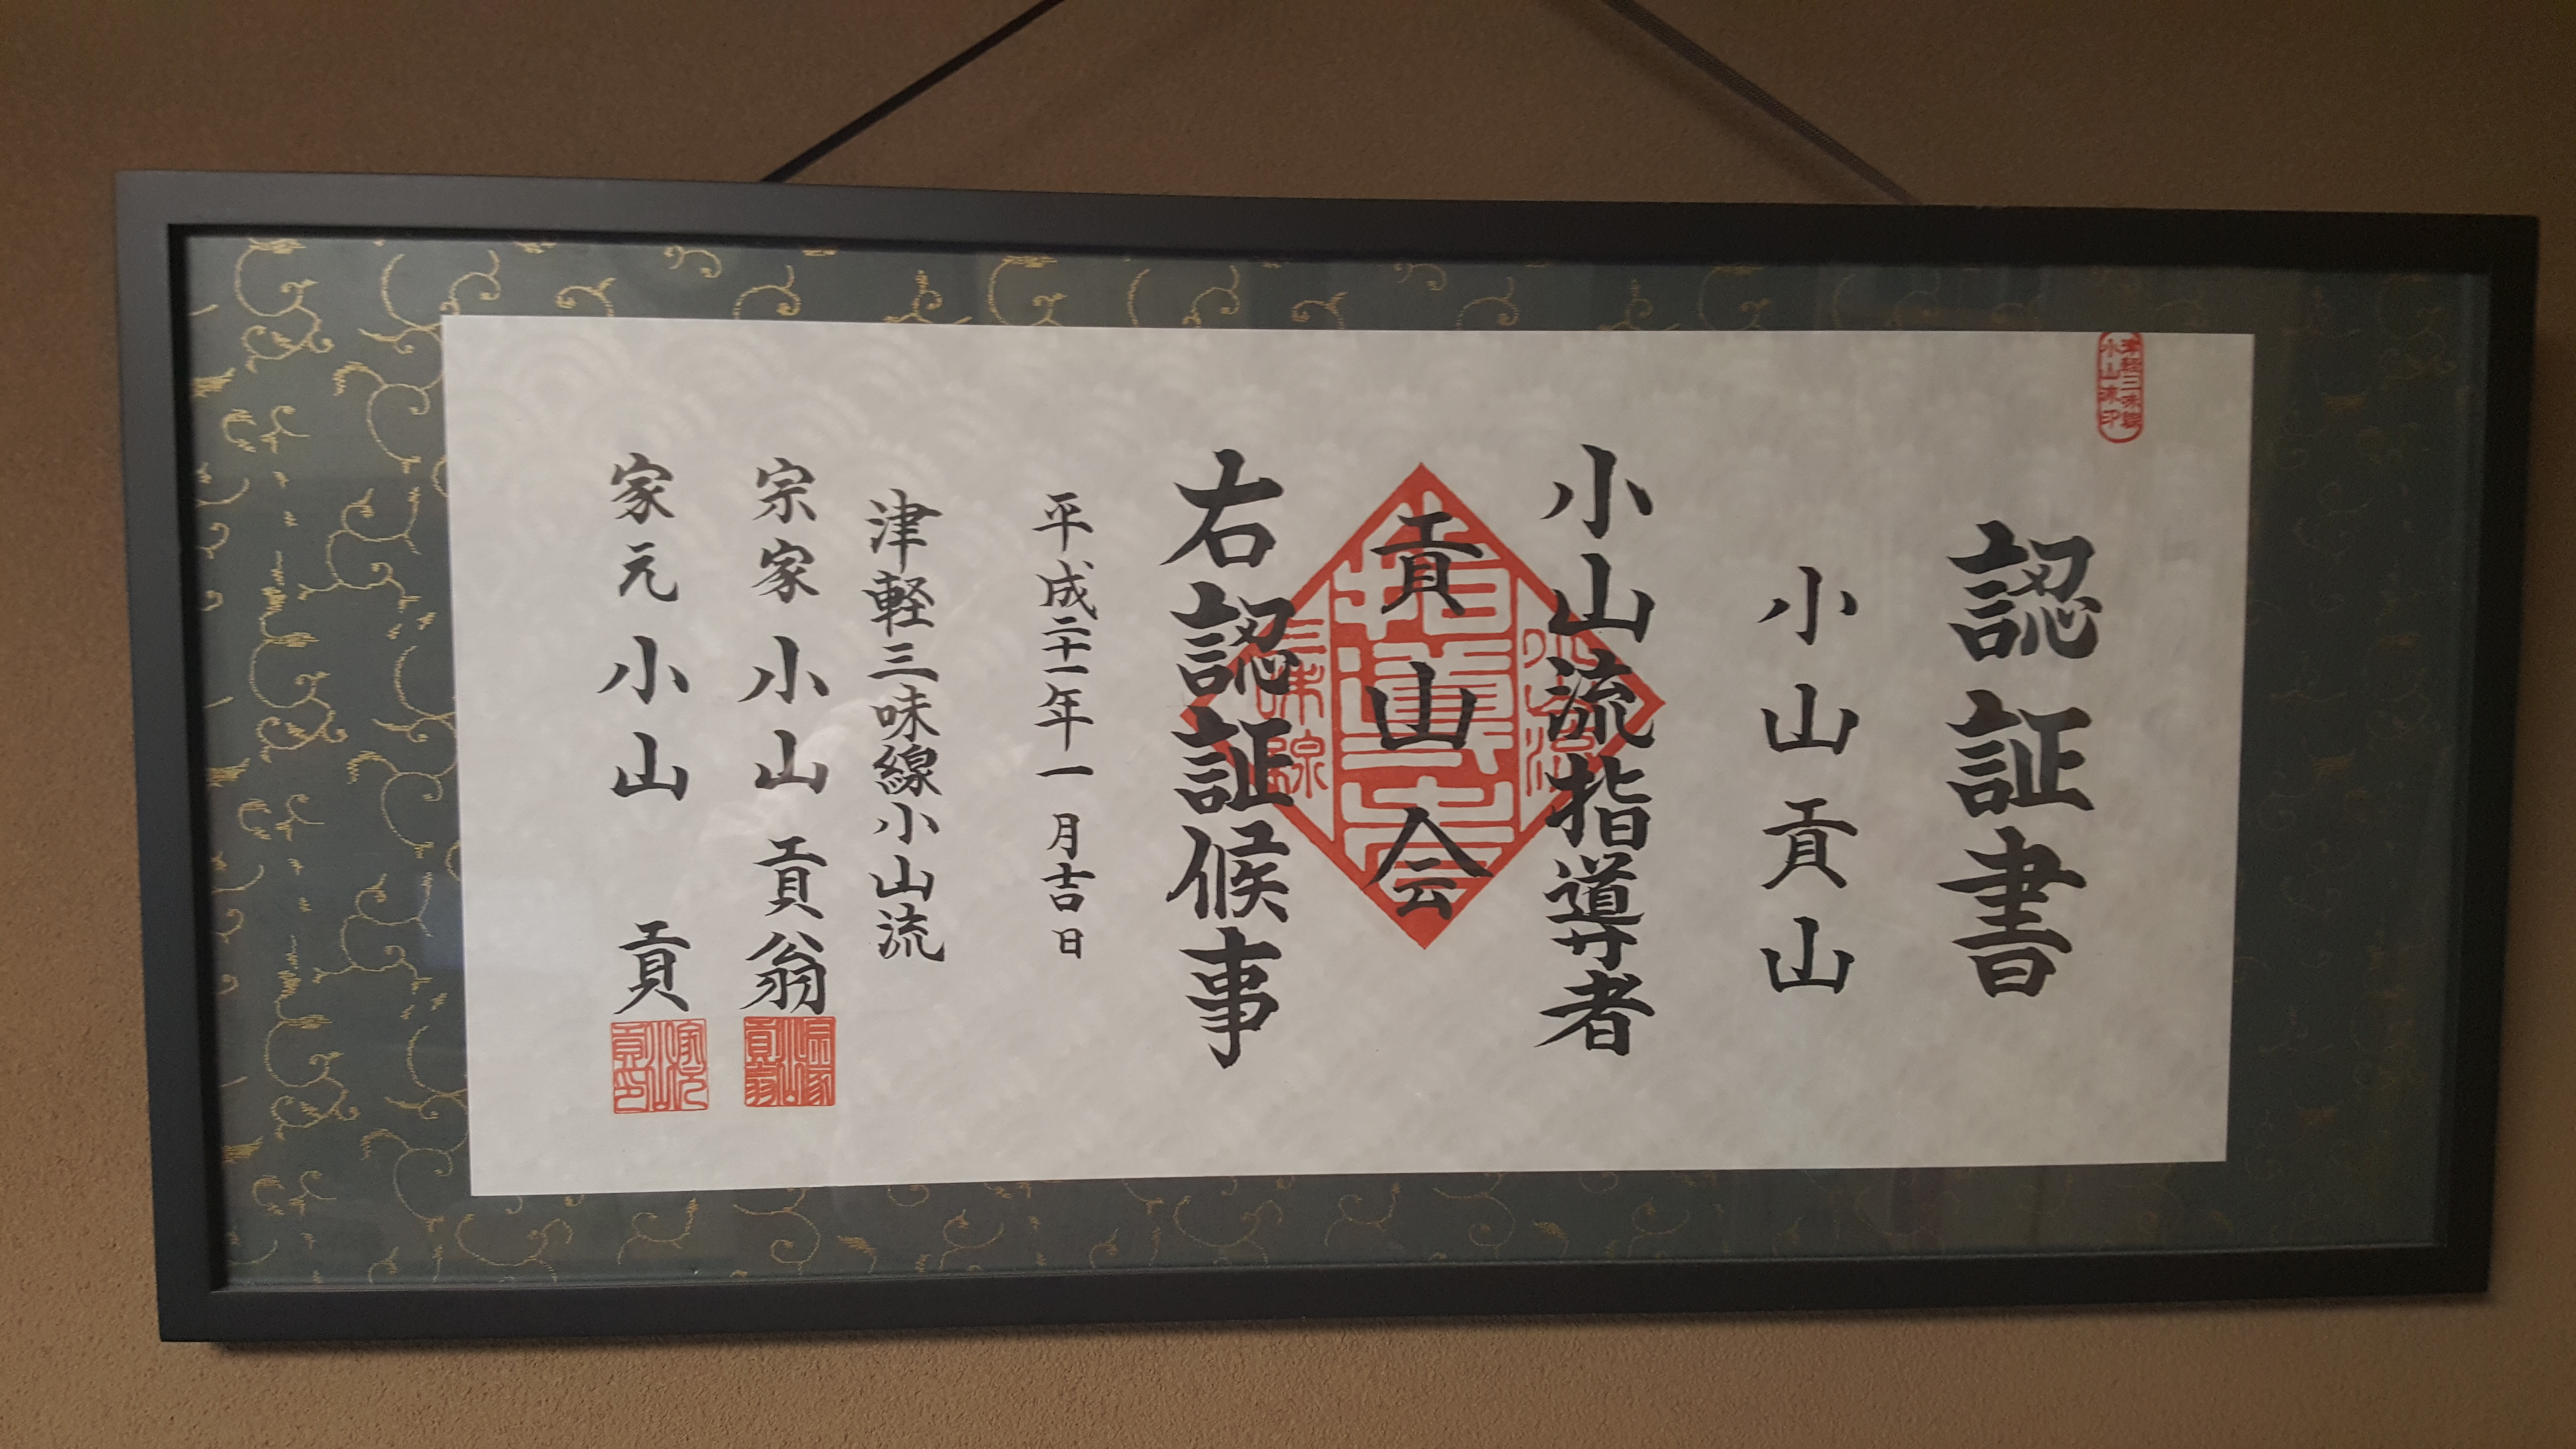 認証書
小山貢山
小山流指導者
貢山会
右認証候事
平成二十一年一月吉日
津軽三味線小山流
宗家 小山 貢翁
家元 小山 貢
津軽三味線
小山流印
小山流
指導者
三味線